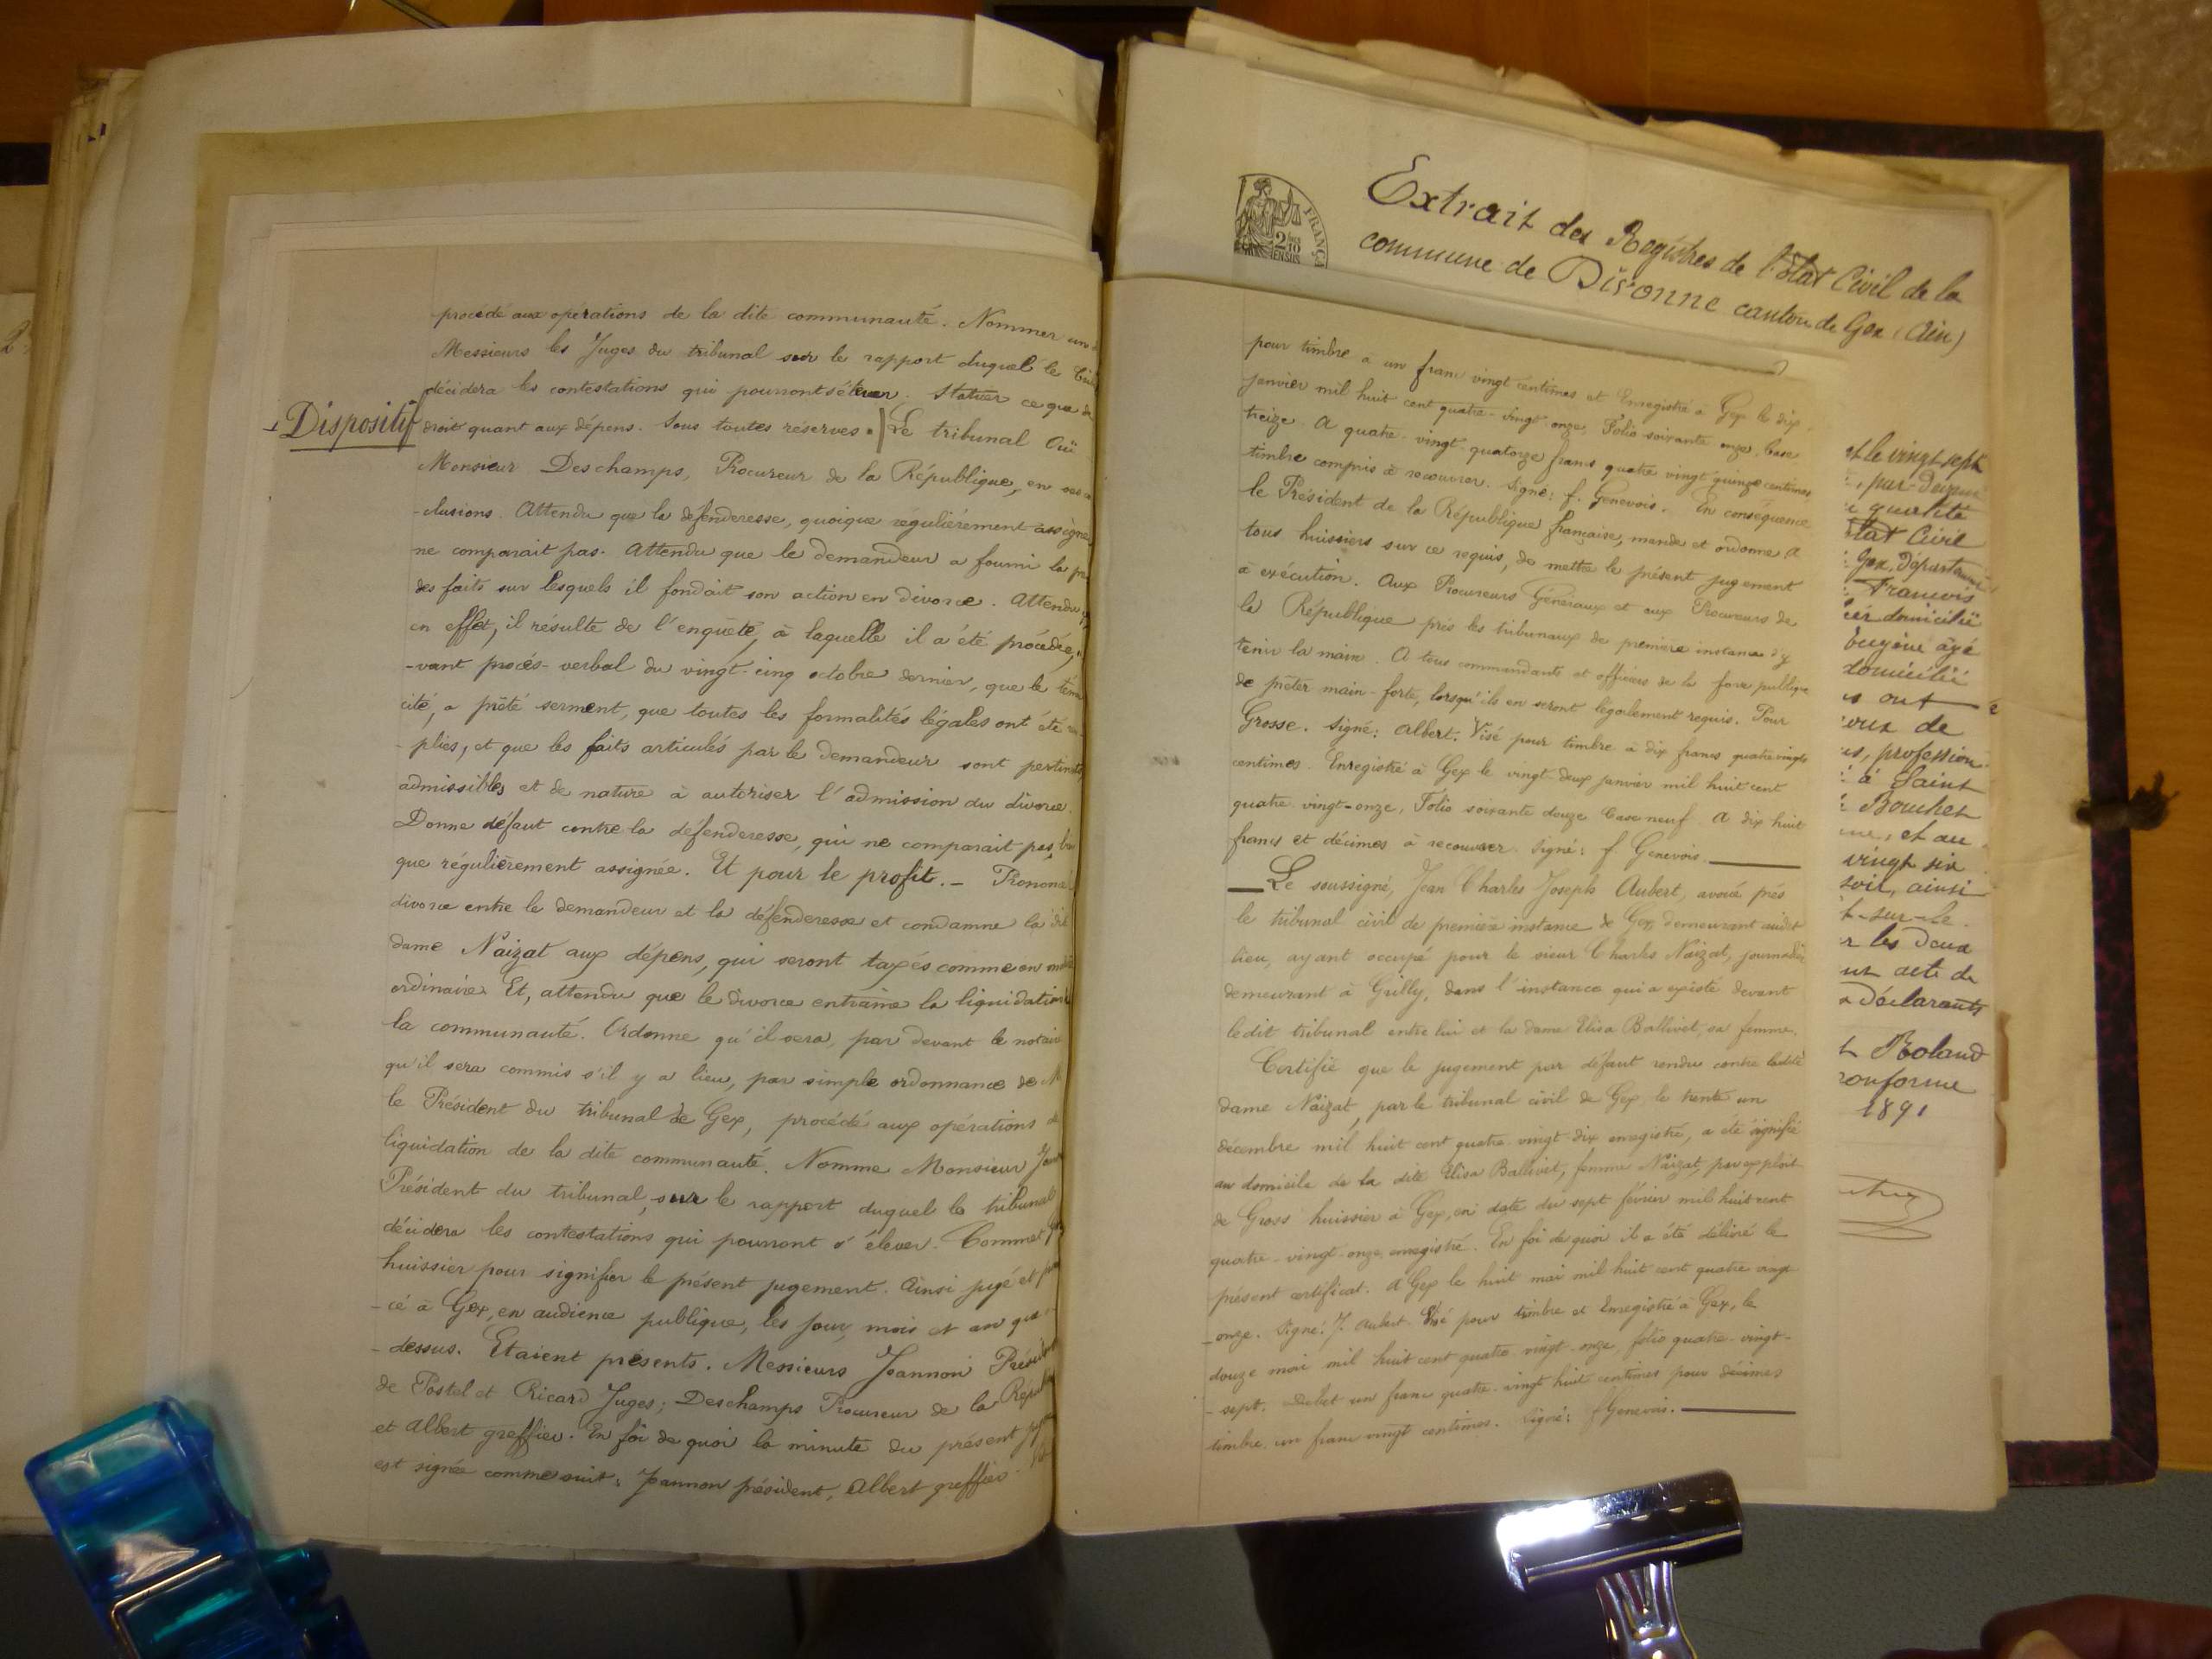 procédé aux opérations de la dite communauté. Nommer un
Messieurs les Juges du tribunal sur le rapport duquel le
décidera les contestations qui pourront s'élever. Statuer ce que de
Dispositif
droit quant aux dépens. Sous toutes réserves. Le tribunal Ouï
Monsieur Deschamps, Procureur de la République, en ses
-clusions. Attendu que la défenderesse, quoique régulièrement assignée
ne comparait pas. Attendu que le demandeur a fourni la
des faits sur lesquels il fondait son action en divorce. Attendu
en effet, il résulte de l'enquête, à laquelle il a été procédé,
-vant procès-verbal du vingt-cinq octobre dernier, que le
cité, a prêté serment, que toutes les formalités légales ont été
-plies, et que les faits articulés par le demandeur sont pertinents
admissibles et de nature à autoriser l'admission du divorce.
Donne défaut contre la défenderesse, qui ne comparait pas,
que régulièrement assignée. Et pour le profit. - Prononce
divorce entre le demandeur et la défenderesse et condamne la
dame Naizat aux dépens, qui seront taxés comme en
ordinaire. Et, attendu que le divorce entraîne la liquidation
la communauté. Ordonne qu'il sera, par devant le notaire
qu'il sera commis s'il y a lieu, par simple ordonnance de M
le Président du tribunal de Gex, procédé aux opérations de
liquidation de la dite communauté. Nomme Monsieur
Président du tribunal, sur le rapport duquel le tribunal
décidera les contestations qui pourront s'élever. Commet
huissier pour signifier le présent jugement. Ainsi jugé et
-cé à Gex, en audience publique, les jour, mois et an que
-dessus. Etaient présents. Messieurs Joannon Président
de Postel et Ricard Juges; Deschamps Procureur de la
et Albert greffier. En foi de quoi la minute du présent
est signée comme suit: Joannon président, Albert greffier.
FRANÇA
2
10
EN SUS
Extrait des Registres de l'Etat Civil de la
commune de Divonne canton de Gex (Ain)
pour timbre à un franc vingt centimes et Enregistré à Gex le dix
janvier mil huit cent quatre-vingt-onze, Folio soixante onze, Case
treize. A quatre-vingt-quatorze francs quatre vingt quinze centimes
timbre compris à recouvrer. Signé: f. Genevois. En conséquence
le Président de la République française, mande et ordonne à
tous huissiers sur ce requis, de mettre le présent jugement
à exécution. Aux Procureurs Généraux et aux Procureurs de
la République près les tribunaux de première instance d'y
tenir la main. A tous commandants et officiers de la force publique
de prêter main-forte, lorsqu'ils en seront légalement requis. Pour
Grosse. Signé: Albert. Visé pour timbre à dix francs quatre vingts
centimes. Enregistré à Gex le vingt-deux janvier mil huit cent
quatre-vingt-onze, Folio soixante douze Case neuf. A dix huit
francs et décimes à recouvrer. Signé: f. Genevois.
Le soussigné, Jean Charles Joseph Aubert, avoué près
le tribunal civil de première instance de Gex, demeurant audit
lieu, ayant occupé pour le sieur Charles Naizat, journalier
demeurant à Grilly, dans l'instance qui a existé devant
ledit tribunal entre lui et la dame Elisa Ballivet, sa femme.
Certifie que le jugement par défaut rendu contre ladite
dame Naizat, par le tribunal civil de Gex, le trente un
décembre mil huit cent quatre-vingt-dix enregistré, a été signifié
au domicile de la dite Elisa Ballivet, femme Naizat, par exploit
de Gross huissier à Gex, en date du sept février mil huit cent
quatre-vingt-onze enregistré. En foi de quoi il a été délivré le
présent certificat. A Gex le huit mai mil huit cent quatre vingt
-onze. Signé: J. Aubert. Visé pour timbre et Enregistré à Gex, le
douze mai mil huit cent quatre-vingt-onze, folio quatre-vingt-
-sept. Débet un franc quatre-vingt huit centimes pour décimes
timbre un franc vingt centimes. Signé: f Genevois.
et le vingt sept
par devant
qualité
Etat Civil
Gex, Départem
François
domicilié
Eugène âgé
domicilié
ont
de
profession
à Saint
Bouchet
et au
vingt six
soir, ainsi
sur-le
les deux
acte de
déclarants
Roland
conforme
1891